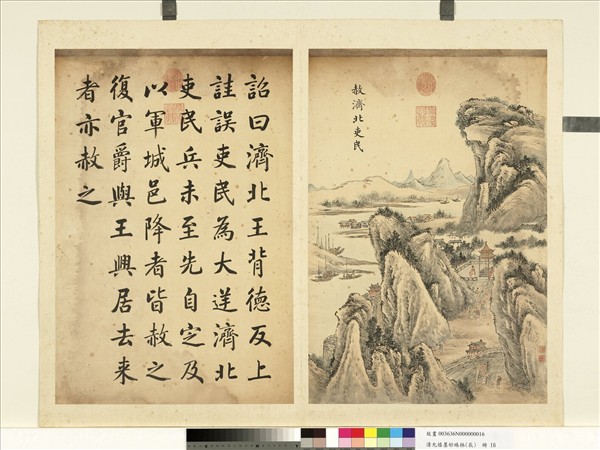 赦濟北吏民
詔曰濟北王背德反上
詿誤吏民為大逆濟北
吏民兵未至先自定及
以軍城邑降者皆赦之
復官爵與王興居去來
者亦赦之
故畫 003636N000000016
墨妙珠林 16